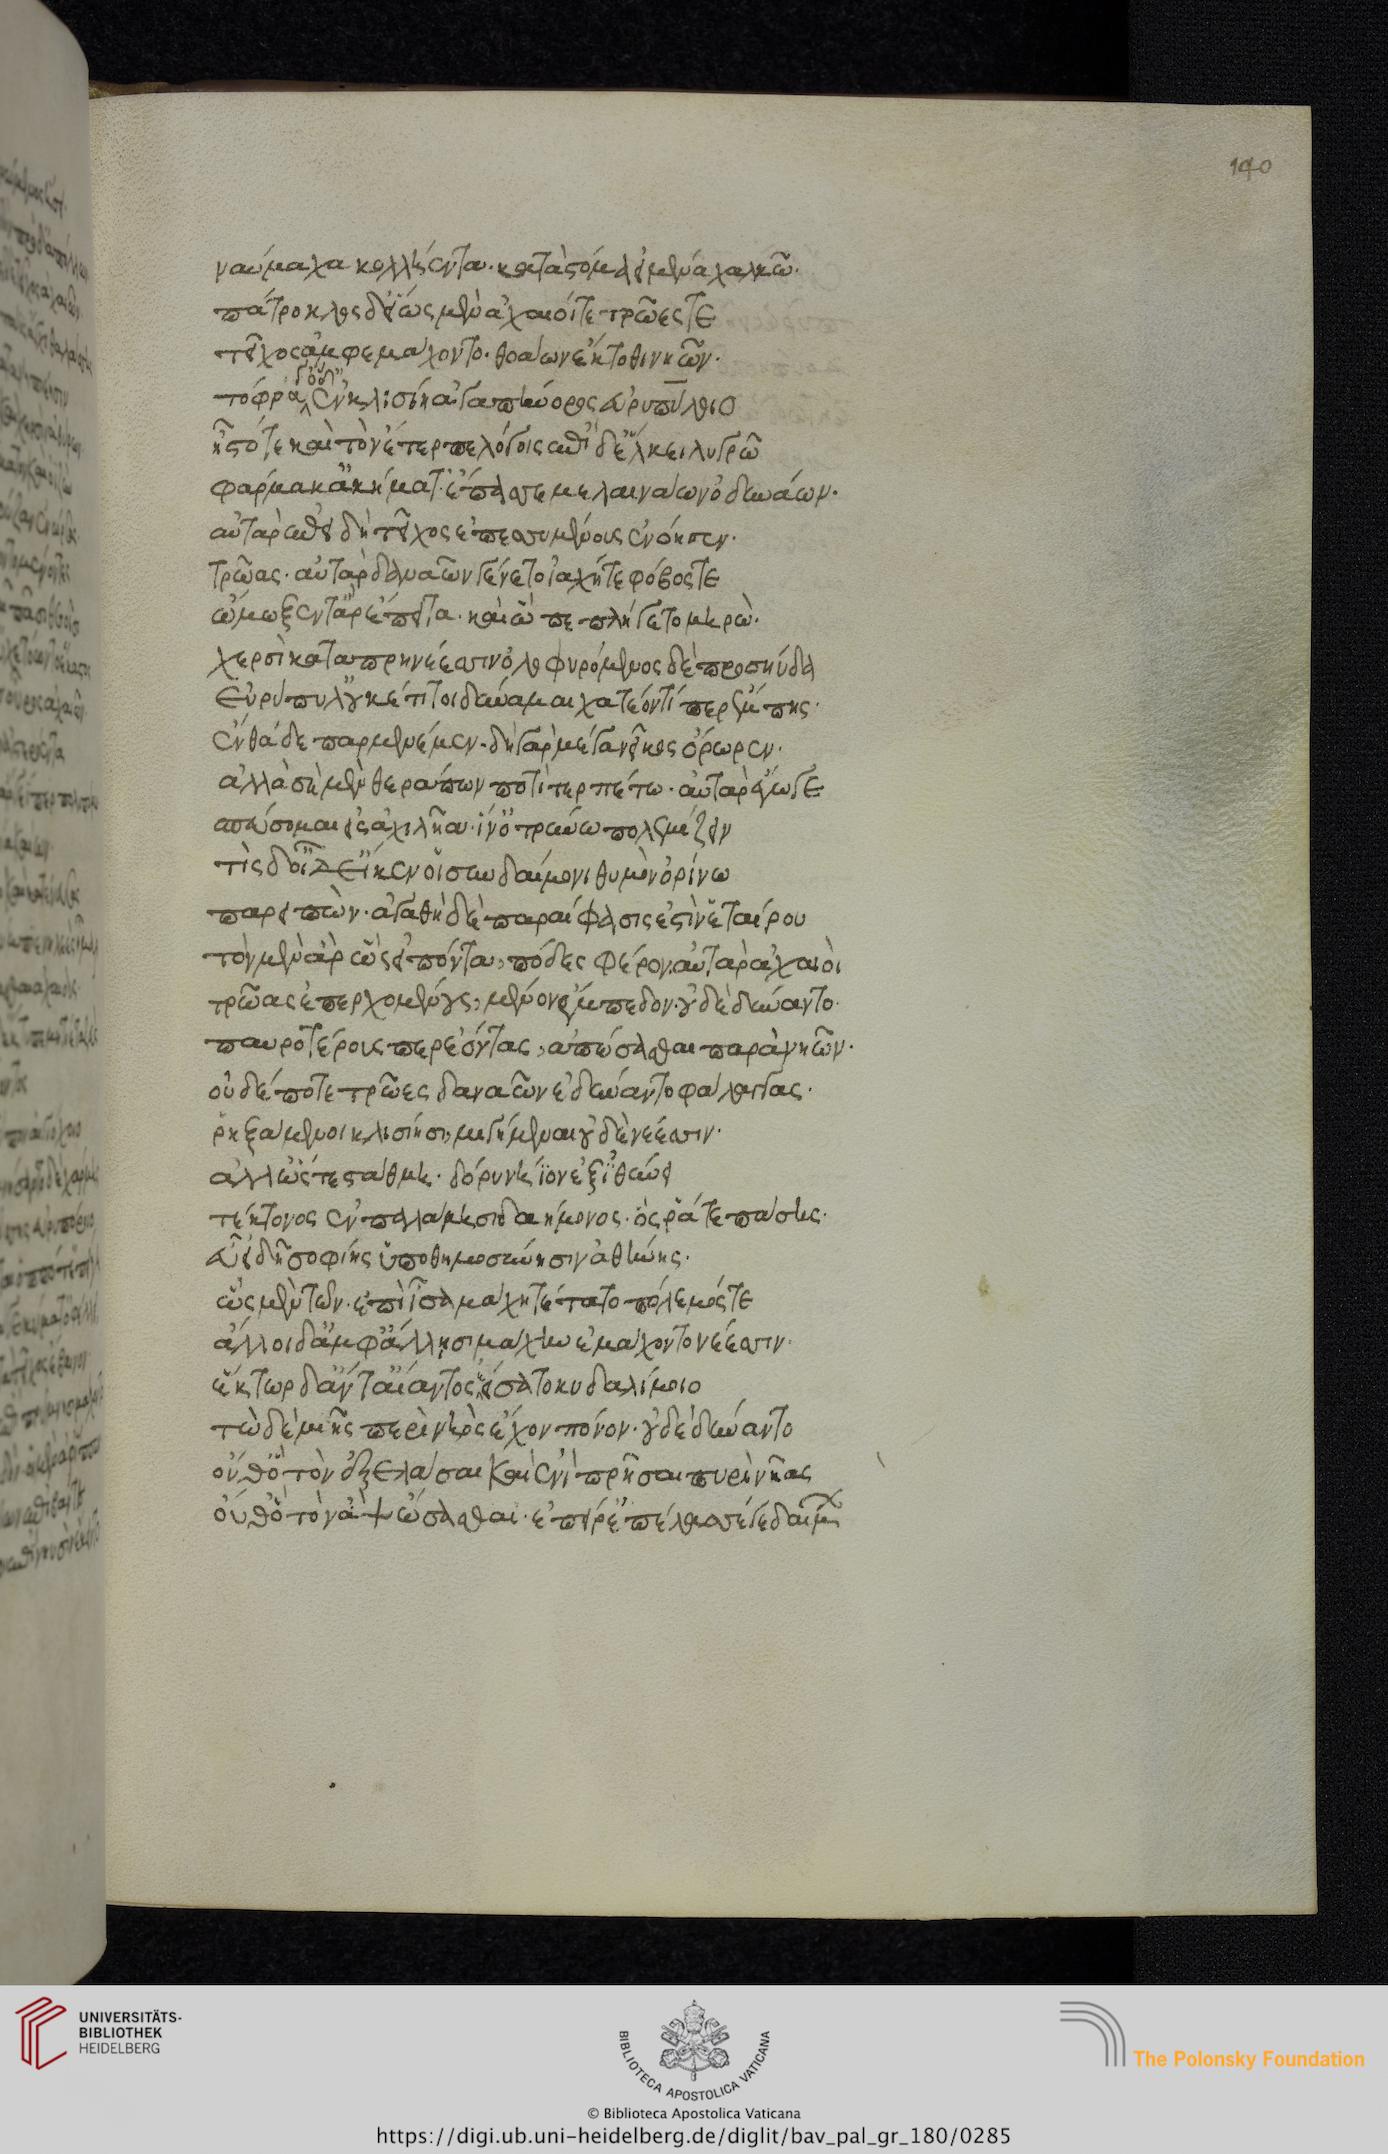 140
ναύμαχα κολλήεντα· κατὰ στόμα εἱμένα χαλκῶ·
πάτροκλος δ' εἵως μὲν ἀχαιοί τε τρῶές τε
τείχος ἀμφεμάχοντο· θοάων ἔκτοθι νηῶν·
τόφρα ὅδ' ἐν κλισίη ἀγαπήνορος εὐρυπύλοιο
ἧστό τε καὶ τὸν ἔτερπε λόγοις ἐπὶ δ' ἕλκει λυγρῶ
φάρμακ' ἀκήματ' ἔπασσε μελαινάων ὀδυνάων·
αὐτὰρ ἐπεὶ δὴ τεῖχος ἐπεσσυμένους ἐνόησεν·
τρῶας· αὐτὰρ δαναῶν γένετο ἰαχή τε φόβος τε
ὤμωξέν τ' ἄρ ἔπειτα· καὶ ὣ πεπλήγετο μηρώ·
χερσὶ καταπρηνέεσσιν ὀλοφυρόμενος δὲ προσηύδα
Εὐρύπυλ' οὐκέτι τοι δύναμαι χατέοντί περ ἔμπης·
ἐνθάδε παρμενέμεν· δὴ γὰρ μέγα νεῖκος ὄρωρεν·
ἀλλὰ σὲ μὲν θεράπων ποτιτερπέτω· αὐτὰρ ἔγωγε
σπεύσομαι εἰς ἀχιλῆα· ἵν' ὀτρύνω πολεμίζειν
τίς δ' οἶδ' εἴ κεν οἱ σὺν δαίμονι θυμὸν ὀρίνω
παρειπών· ἀγαθὴ δὲ παραίφασις ἐστὶν ἑταίρου
τὸν μὲν ἄρ ὣς εἰπόντα, πόδες φέρον· αὐτὰρ ἀχαιοὶ
τρῶας ἐπερχομένους, μένον ἔμπεδον· οὐδὲ δύναντο·
παυροτέρους περ ἐόντας, ἀπώσασθαι παρὰ νηῶν·
οὐδέ ποτε τρῶες δαναῶν ἐδύναντο φάλαγγας·
ῥηξάμενοι κλισίησι, μιγήμεναι οὐδὲ νέεσσιν·
ἀλλ' ὥς τε στάθμη· δόρυ νήϊον ἐξιθύνει
τέκτονος ἐν παλάμησι δαήμονος· ὅς ῥά τε πάσης·
εὖ εἰδῆ σοφίης ὑποθημοσύνησιν ἀθήνης·
ὣς μὲν τῶν· ἐπὶ ἶσα μάχη τέτατο πόλεμός τε
ἄλλοι δ' ἀμφ' ἄλλησι μάχην ἐμάχοντο νέεσσιν·
ἕκτωρ δ' ἄντ' αἴαντος ἐείσατο κυδαλίμοιο
τὼ δὲ μιῆς περὶ νηὸς ἔχον πόνον· οὐδὲ δύναντο
οὔθ' ὃ τὸν ἐξελάσαι καὶ ἐνὶ πρῆσαι πυρὶ νῆας
οὔθ' ὃ τὸν ἂψ ὤσασθαι· ἐπεί ῥ' ἐπέλασσέ γε δαίμων
UNIVERSITÄTS-
BIBLIOTHEK
HEIDELBERG
BIBLIOTECA APOSTOLICA VATICANA
The Polonsky Foundation
© Biblioteca Apostolica Vaticana
https://digi.ub.uni-heidelberg.de/diglit/bav_pal_gr_180/0285